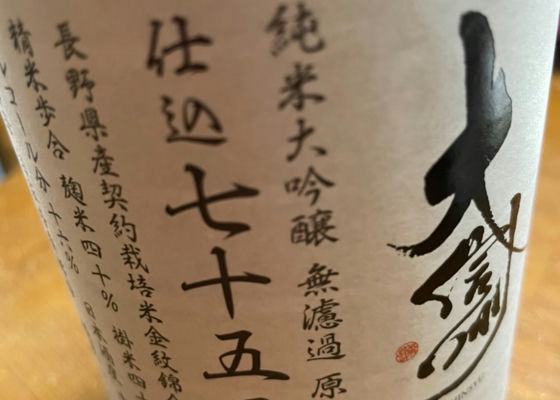 大信州
純米大吟醸 無濾過 原
仕込 七十五
長野県産契約栽培米金紋錦
精米歩合 麹米四十% 掛米四
ルコール分 十六% 日本酒